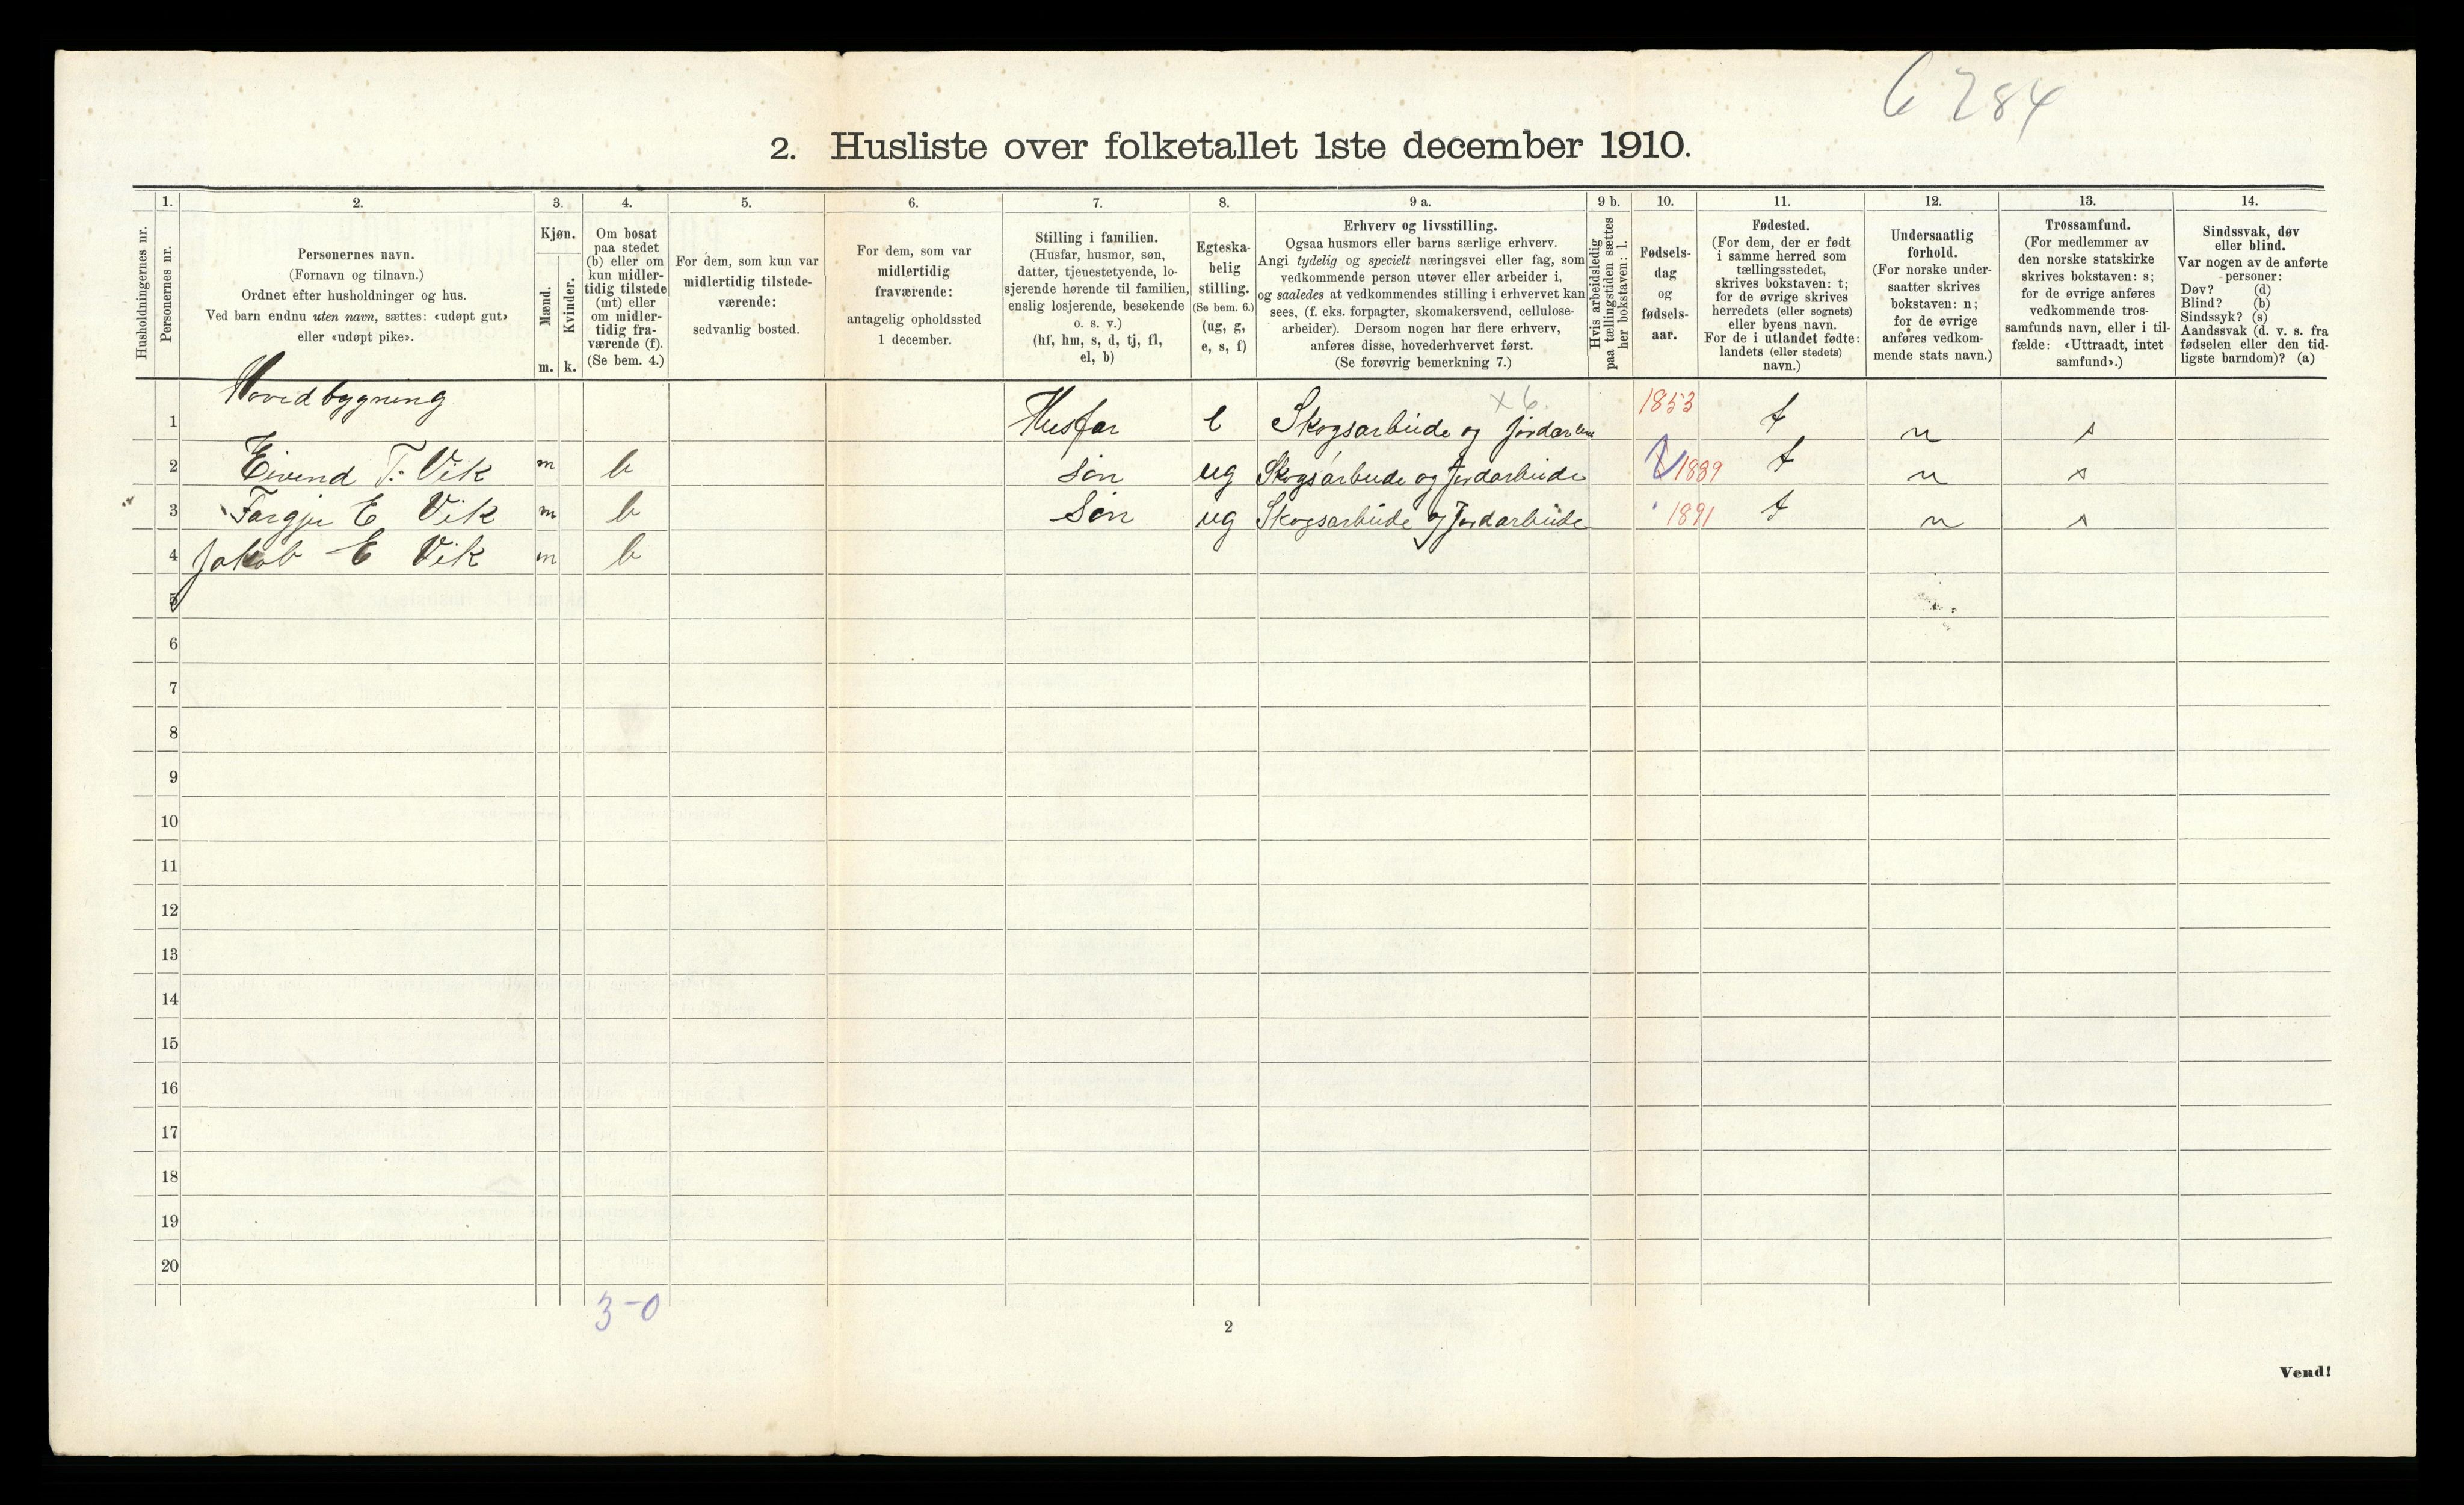 6 284
2. Husliste over folketallet 1ste december 1910.
Husholdningernes nr.
1.
Personernes nr.
2.
Personernes navn.
(Fornavn og tilnavn.)
Ordnet efter husholdninger og hus.
Ved barn endnu uten navn, sættes: «udøpt gut»
eller «udøpt pike».
3.
Kjøn.
Mænd.
Kvinder.
m. k.
4.
Om bosat
paa stedet
(b) eller om
kun midler-
tidig tilstede
(mt) eller
om midler-
tidig fra-
værende (f).
(Se bem. 4.)
5.
For dem, som kun var
midlertidig tilstede-
værende:
sedvanlig bosted.
6.
For dem, som var
midlertidig
fraværende:
antagelig opholdssted
1 december.
7.
Stilling i familien.
(Husfar, husmor, søn,
datter, tjenestetyende, lo-
sjerende hørende til familien,
enslig losjerende, besøkende
o. s. v.)
(hf, hm, s, d, tj, fl,
el, b)
8.
Egteska-
belig
stilling.
(Se bem. 6.)
(ug, g,
e, s, f)
9 a.
Erhverv og livsstilling.
Ogsaa husmors eller barns særlige erhverv.
Angi tydelig og specielt næringsvei eller fag, som
vedkommende person utøver eller arbeider i,
og saaledes at vedkommendes stilling i erhvervet kan
sees, (f. eks. forpagter, skomakersvend, cellulose-
arbeider). Dersom nogen har flere erhverv,
anføres disse, hovederhvervet først.
(Se forøvrig bemerkning 7.)
9 b.
Hvis arbeidsledig
paa tællingstiden sættes
her bokstaven: l.
10.
Fødsels-
dag
og
fødsels-
aar.
11.
Fødested.
(For dem, der er født
i samme herred som
tællingsstedet,
skrives bokstaven: t;
for de øvrige skrives
herredets (eller sognets)
eller byens navn.
For de i utlandet fødte:
landets (eller stedets)
navn.)
12.
Undersaatlig
forhold.
(For norske under-
saatter skrives
bokstaven: n;
for de øvrige
anføres vedkom-
mende stats navn.)
13.
Trossamfund.
(For medlemmer av
den norske statskirke
skrives bokstaven: s;
for de øvrige anføres
vedkommende tros-
samfunds navn, eller i til-
fælde: «Uttraadt, intet
samfund».)
14.
Sindssvak, døv
eller blind.
Var nogen av de anførte
personer:
Døv? (d)
Blind? (b)
Sindssyk? (s)
Aandssvak (d. v. s. fra
fødselen eller den tid-
ligste barndom)? (a)
1 Hovedbygning Husfar e Skogsarbeide og Jordar x 6. 1853 t n s
2 Eivind T. Vik m b søn ug Skogsarbeide og Jordarbeide 1889 t n s
3 Targje E Vik m b Søn ug Skogsarbeide og Jordarbeide 1891 t n s
4 Jakob E Vik m b
5
6
7
8
9
10
11
12
13
14
15
16
17
18
19
20
3-0
2
Vend!